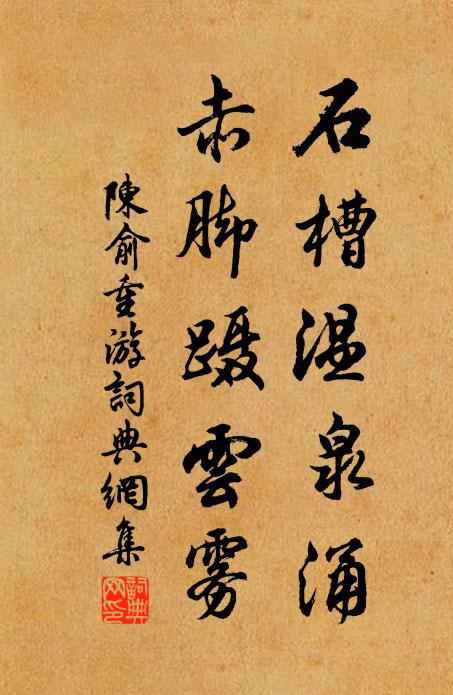 石槽温泉涌
赤脚蹑雲雾
陳俞重游詞典網集
詞典网印